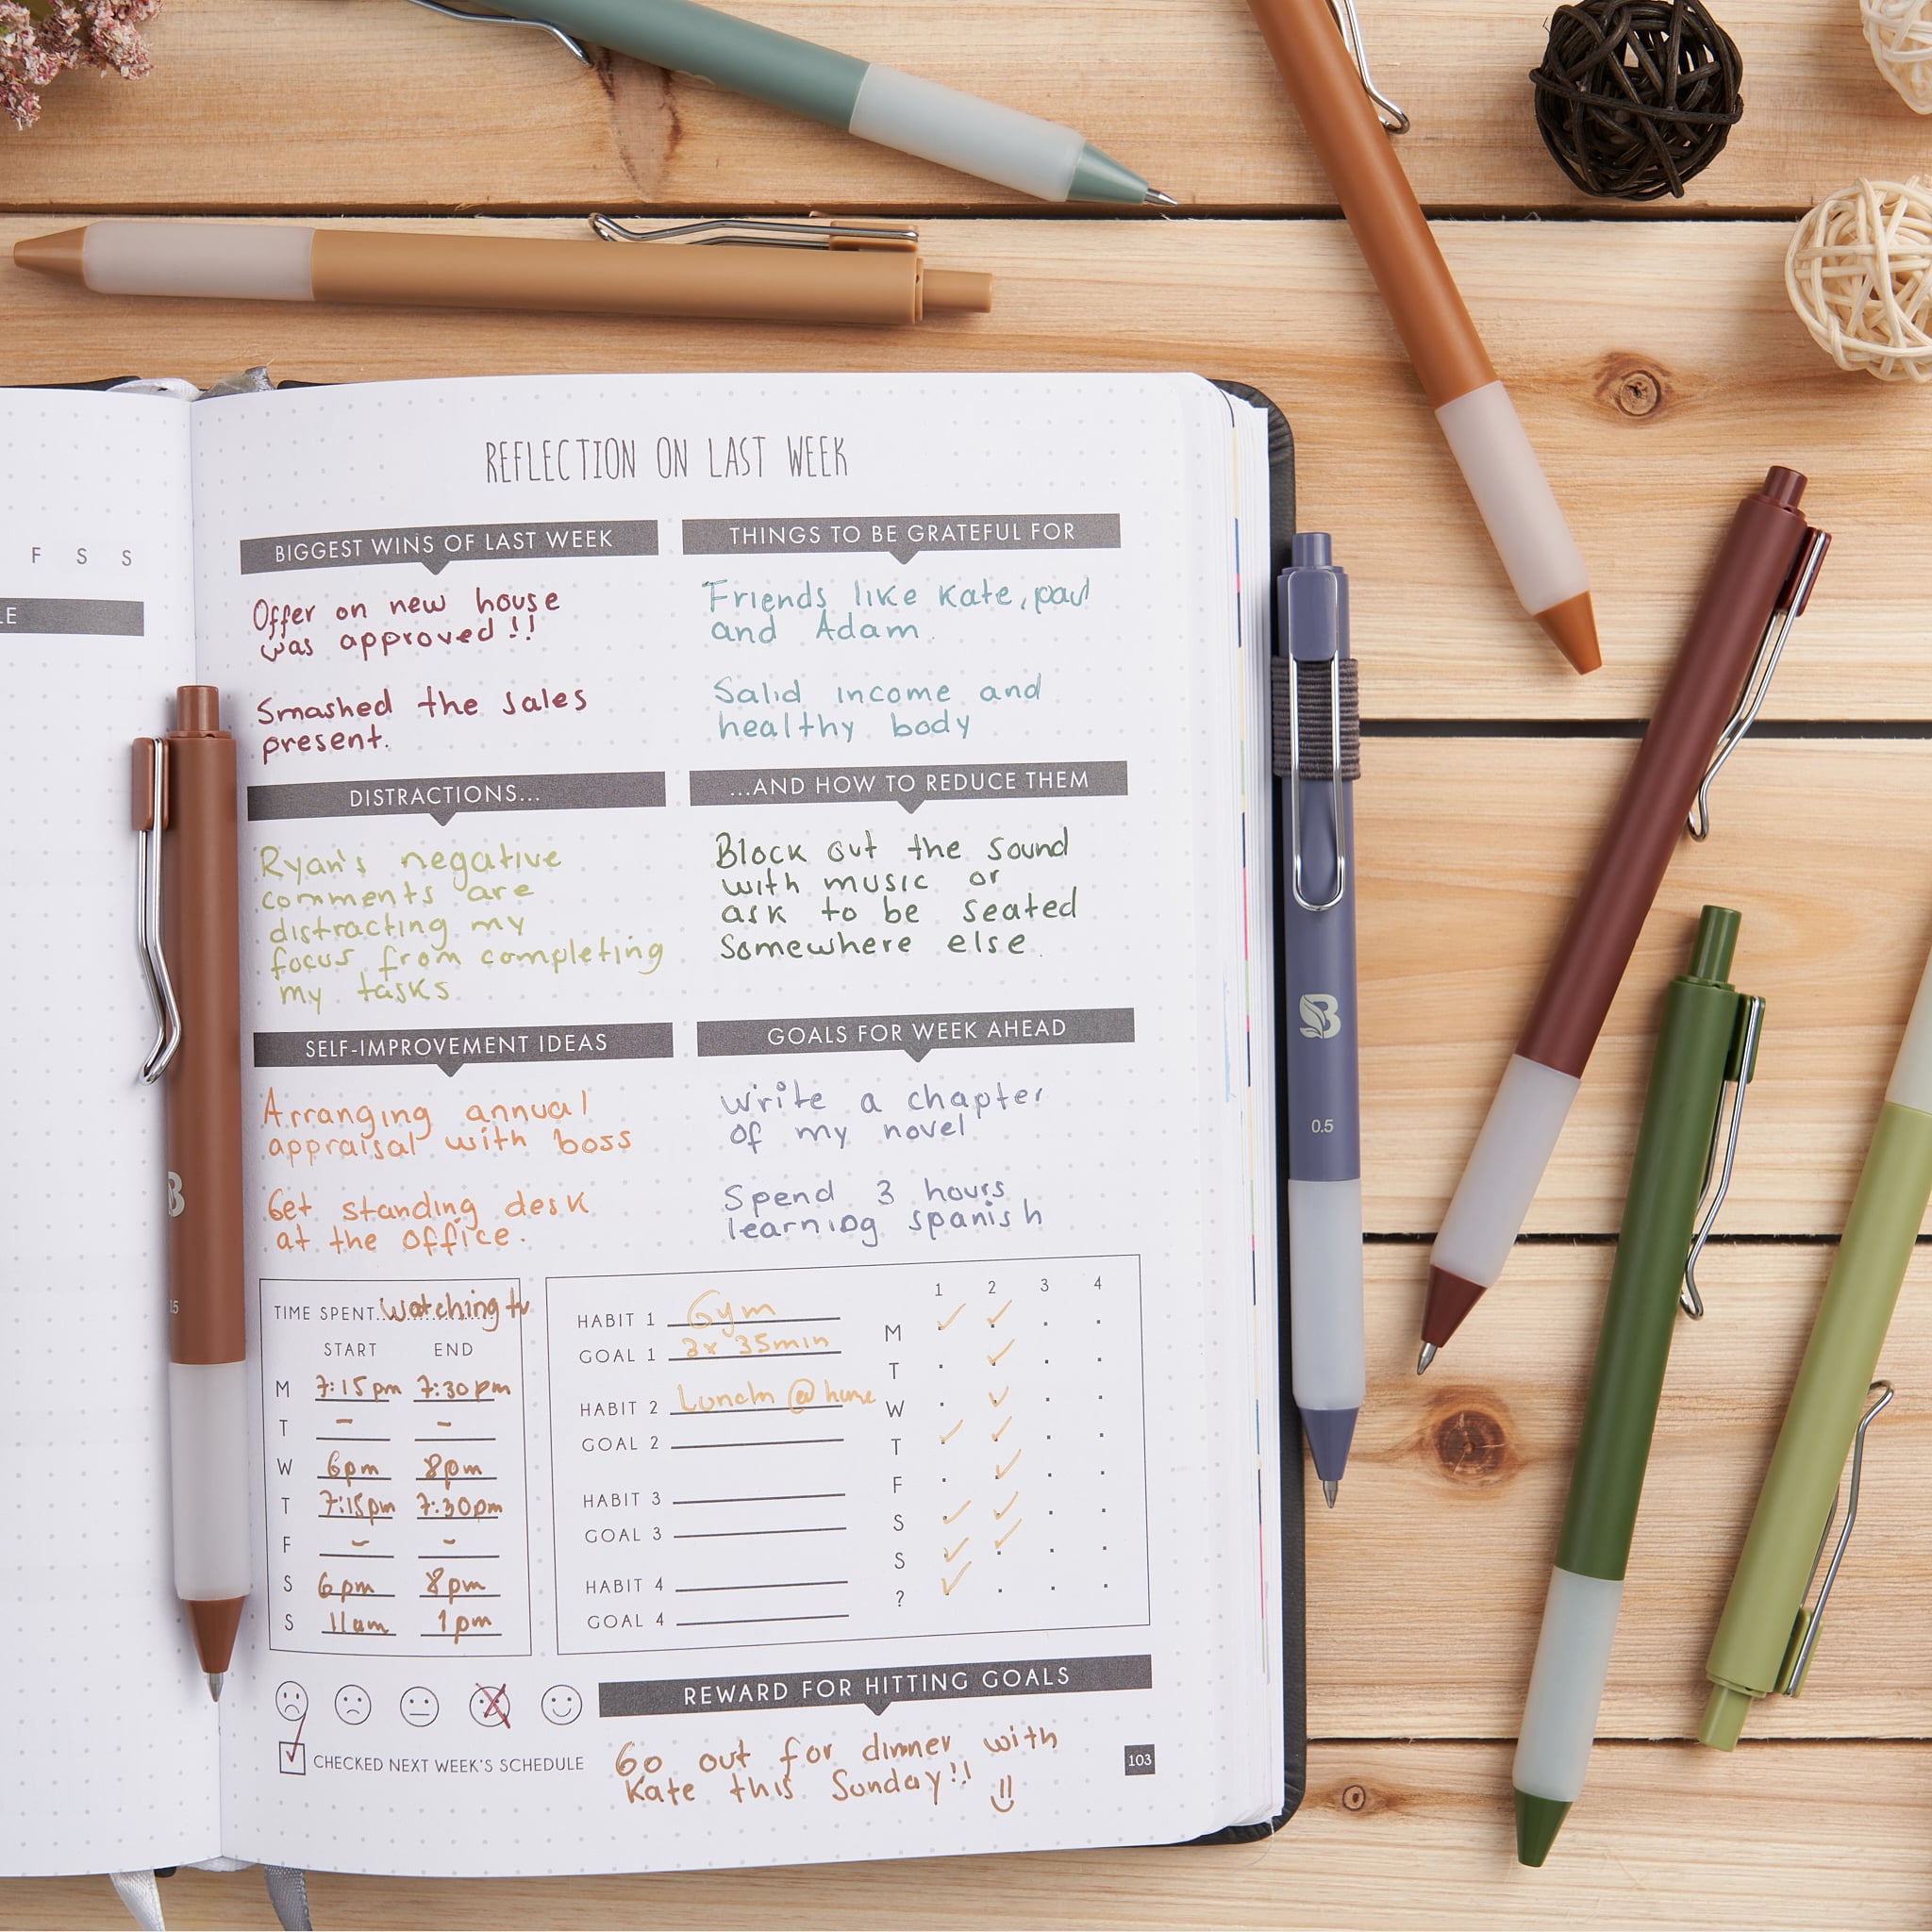 F S S
LE
REFLECTION ON LAST WEEK
BIGGEST WINS OF LAST WEEK
Offer on new house
was approved!!
Smashed the sales
present.
THINGS TO BE GRATEFUL FOR
Friends like Kate, paul
and Adam.
Salid income and
healthy body
DISTRACTIONS...
Ryan's negative
comments are
distracting my
focus from completing
my tasks
...AND HOW TO REDUCE THEM
Block out the sound
with music or
ask to be seated
Somewhere else.
SELF-IMPROVEMENT IDEAS
Arranging annual
appraisal with boss
Get standing desk
at the office.
GOALS FOR WEEK AHEAD
Write a chapter
of my novel
Spend 3 hours
learning spanish
TIME SPENT...watching tv
START END
M 7:15pm 7:30pm
T - -
W 6pm 8pm
T 7:15pm 7:30pm
F - -
S 6pm 8pm
S 11am 1pm
1 2 3 4
HABIT 1 Gym
GOAL 1 3x 35min
HABIT 2 Lunch @ home
GOAL 2
HABIT 3
GOAL 3
HABIT 4
GOAL 4
M
T
W
T
F
S
S
?
CHECKED NEXT WEEK'S SCHEDULE
REWARD FOR HITTING GOALS
Go out for dinner with
Kate this Sunday!!
103
B
0.5
B